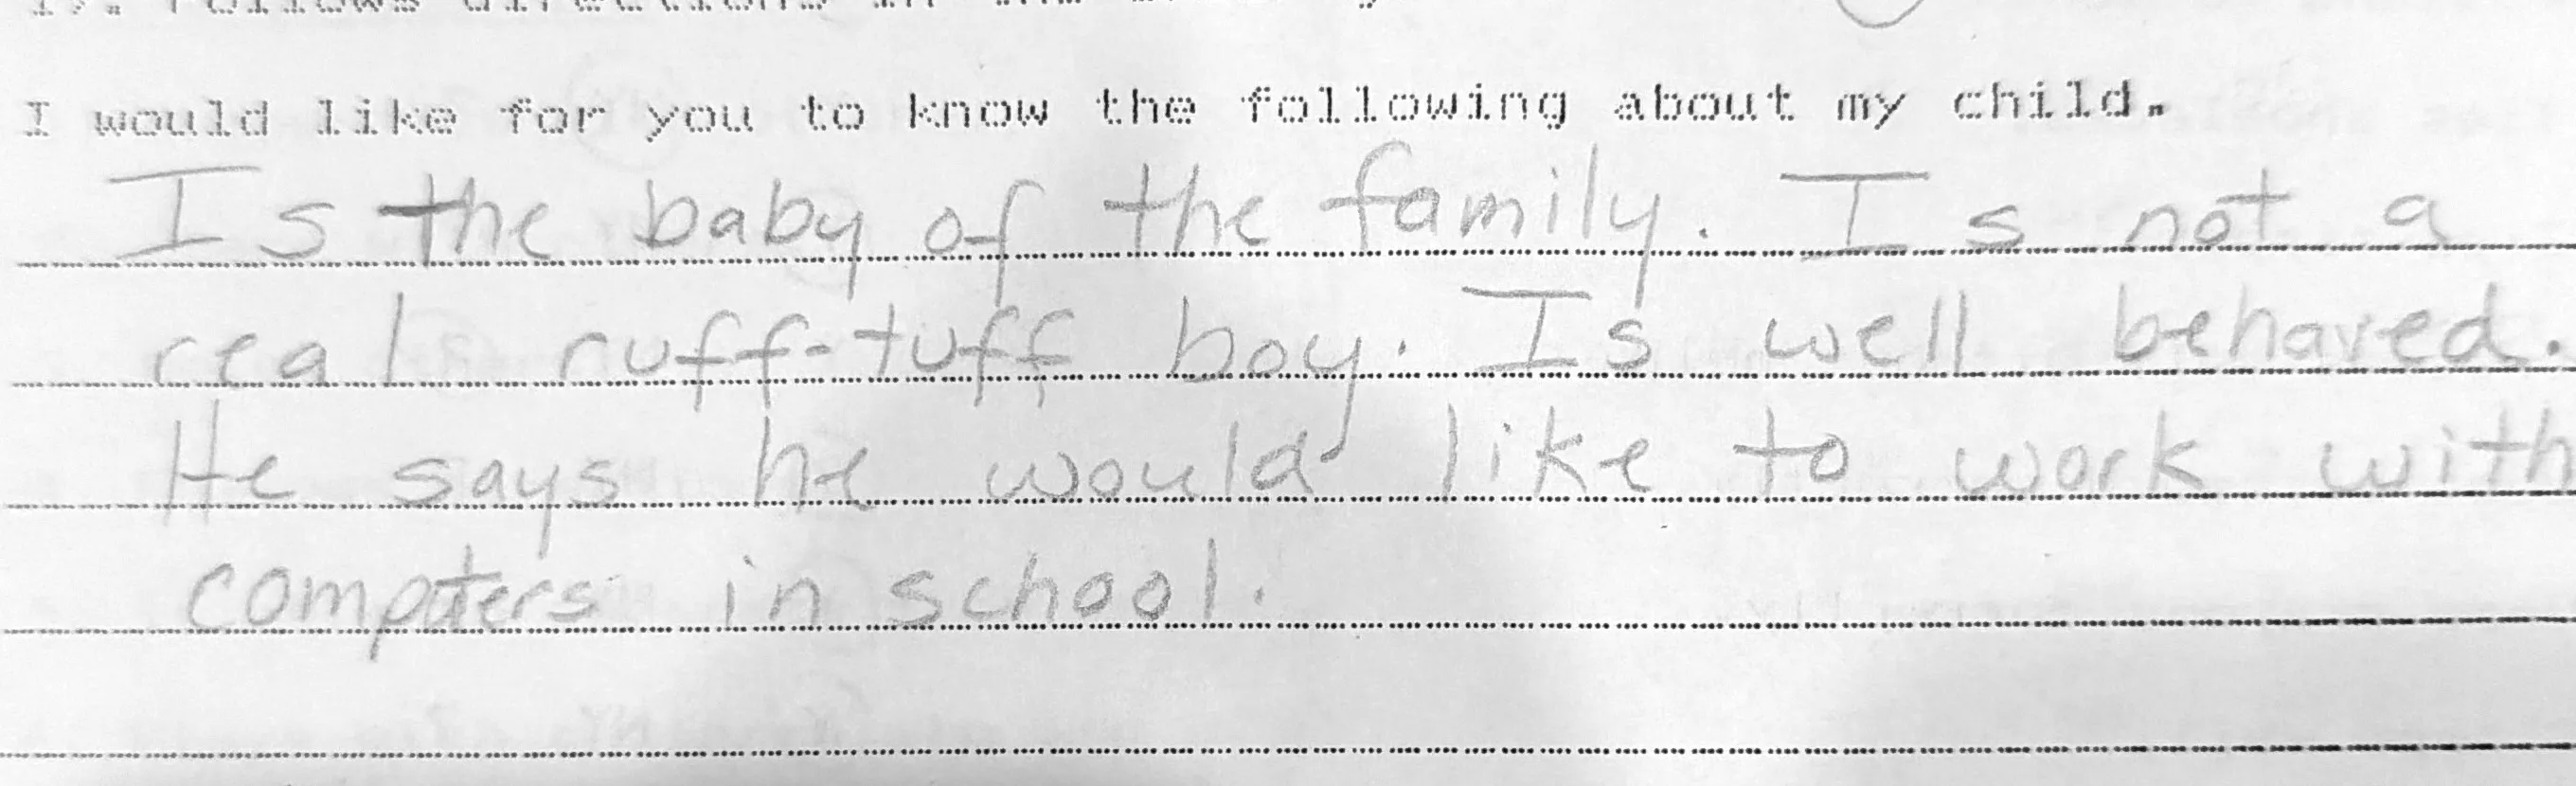 17. Follows directions in the
I would like for you to know the following about my child.
Is the baby of the family. Is not a
real ruff-tuff boy. Is well behaved.
He says he would like to work with
computers in school.